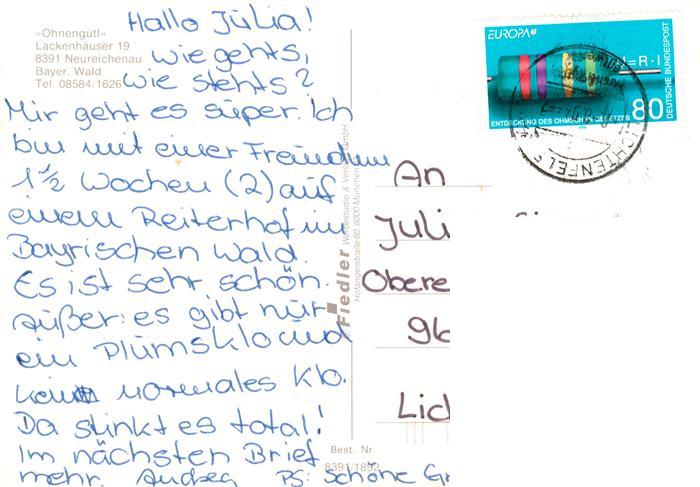 »Ohnengütl«
Lackenhäuser 19
8391 Neureichenau
Bayer. Wald
Tel. 08584/1626
Hallo Julia!
wie gehts,
wie stehts?
Mir geht es super. Ich
bin mit einer Freundin
1 1/2 Wochen (2) auf
einem Reiterhof im
Bayrischen Wald.
Es ist sehr schön.
Außer: es gibt nur
ein Plumsklo und
kein normales Klo.
Da stinkt es total!
Im nächsten Brief
mehr. Andrea PS: Schöne
Fiedler Werbestudio &
Hofangerstraße 60, 8000 München
Best. Nr.
8391/1892
EUROPA
=R·I
DEUTSCHE BUNDESPOST
80
ENTDECKUNG DES OHMSCHEN GESETZES
LICHTENFELS
An
Juli
Obere
96
Lic